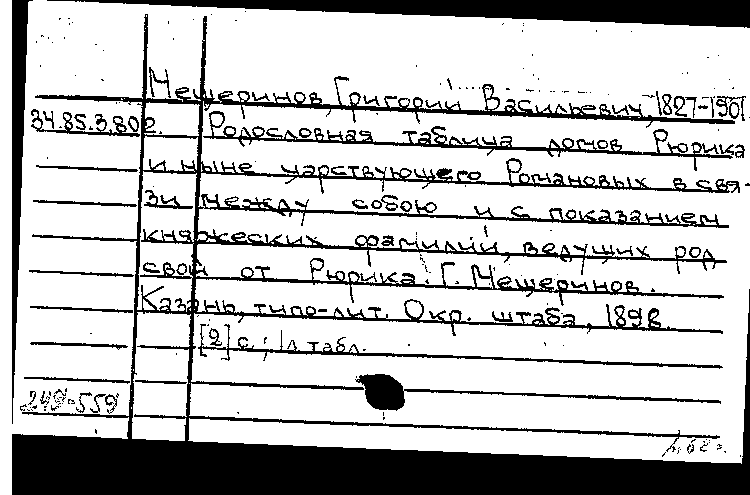 Мещеринов, Григории Васильевич, 1827-1901
34.85.3.802. Родословная таблица домов Рюрика
и ныне царствующего Романовых в свя-
зи между собою и с показанием
княжеских фамилий, ведущих род
свой от Рюрика. Г. Мещеринов.
Казань, типо-лит. Окр. штаба, 1898.
[2] с.; 1 л. табл.
249-559